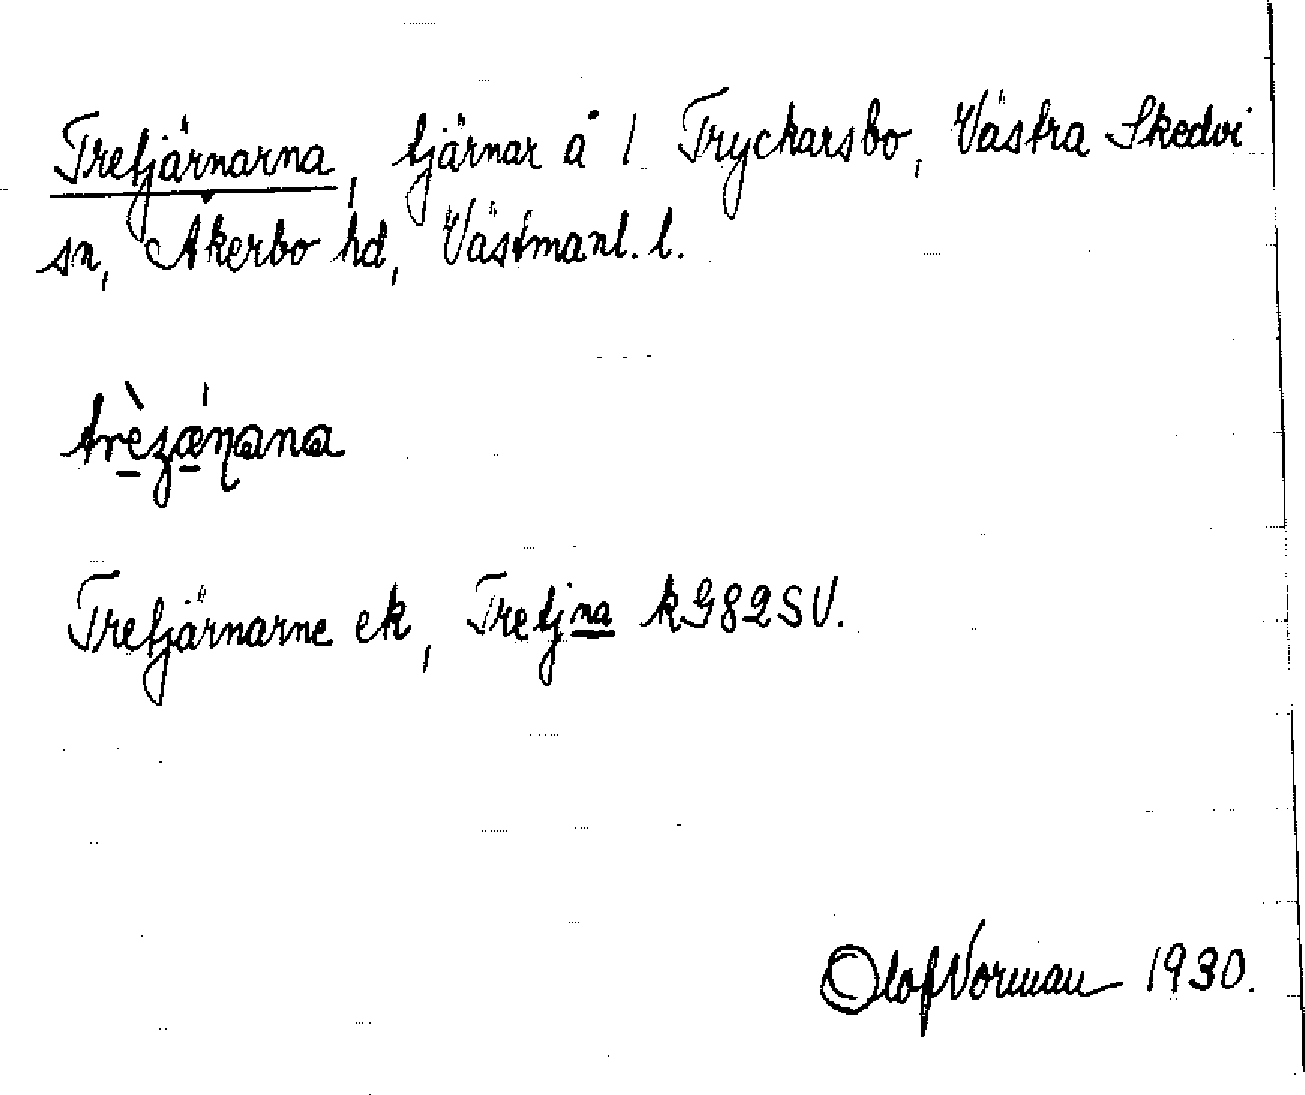 Tretjärnarna, tjärnar å 1 Tryckarsbo, Västra Skedvi
sn, Åkerbo hd, Västmanl. l.
Tretjärnarne ek, Tretjna kG82SV.
Olof Norman 1930.